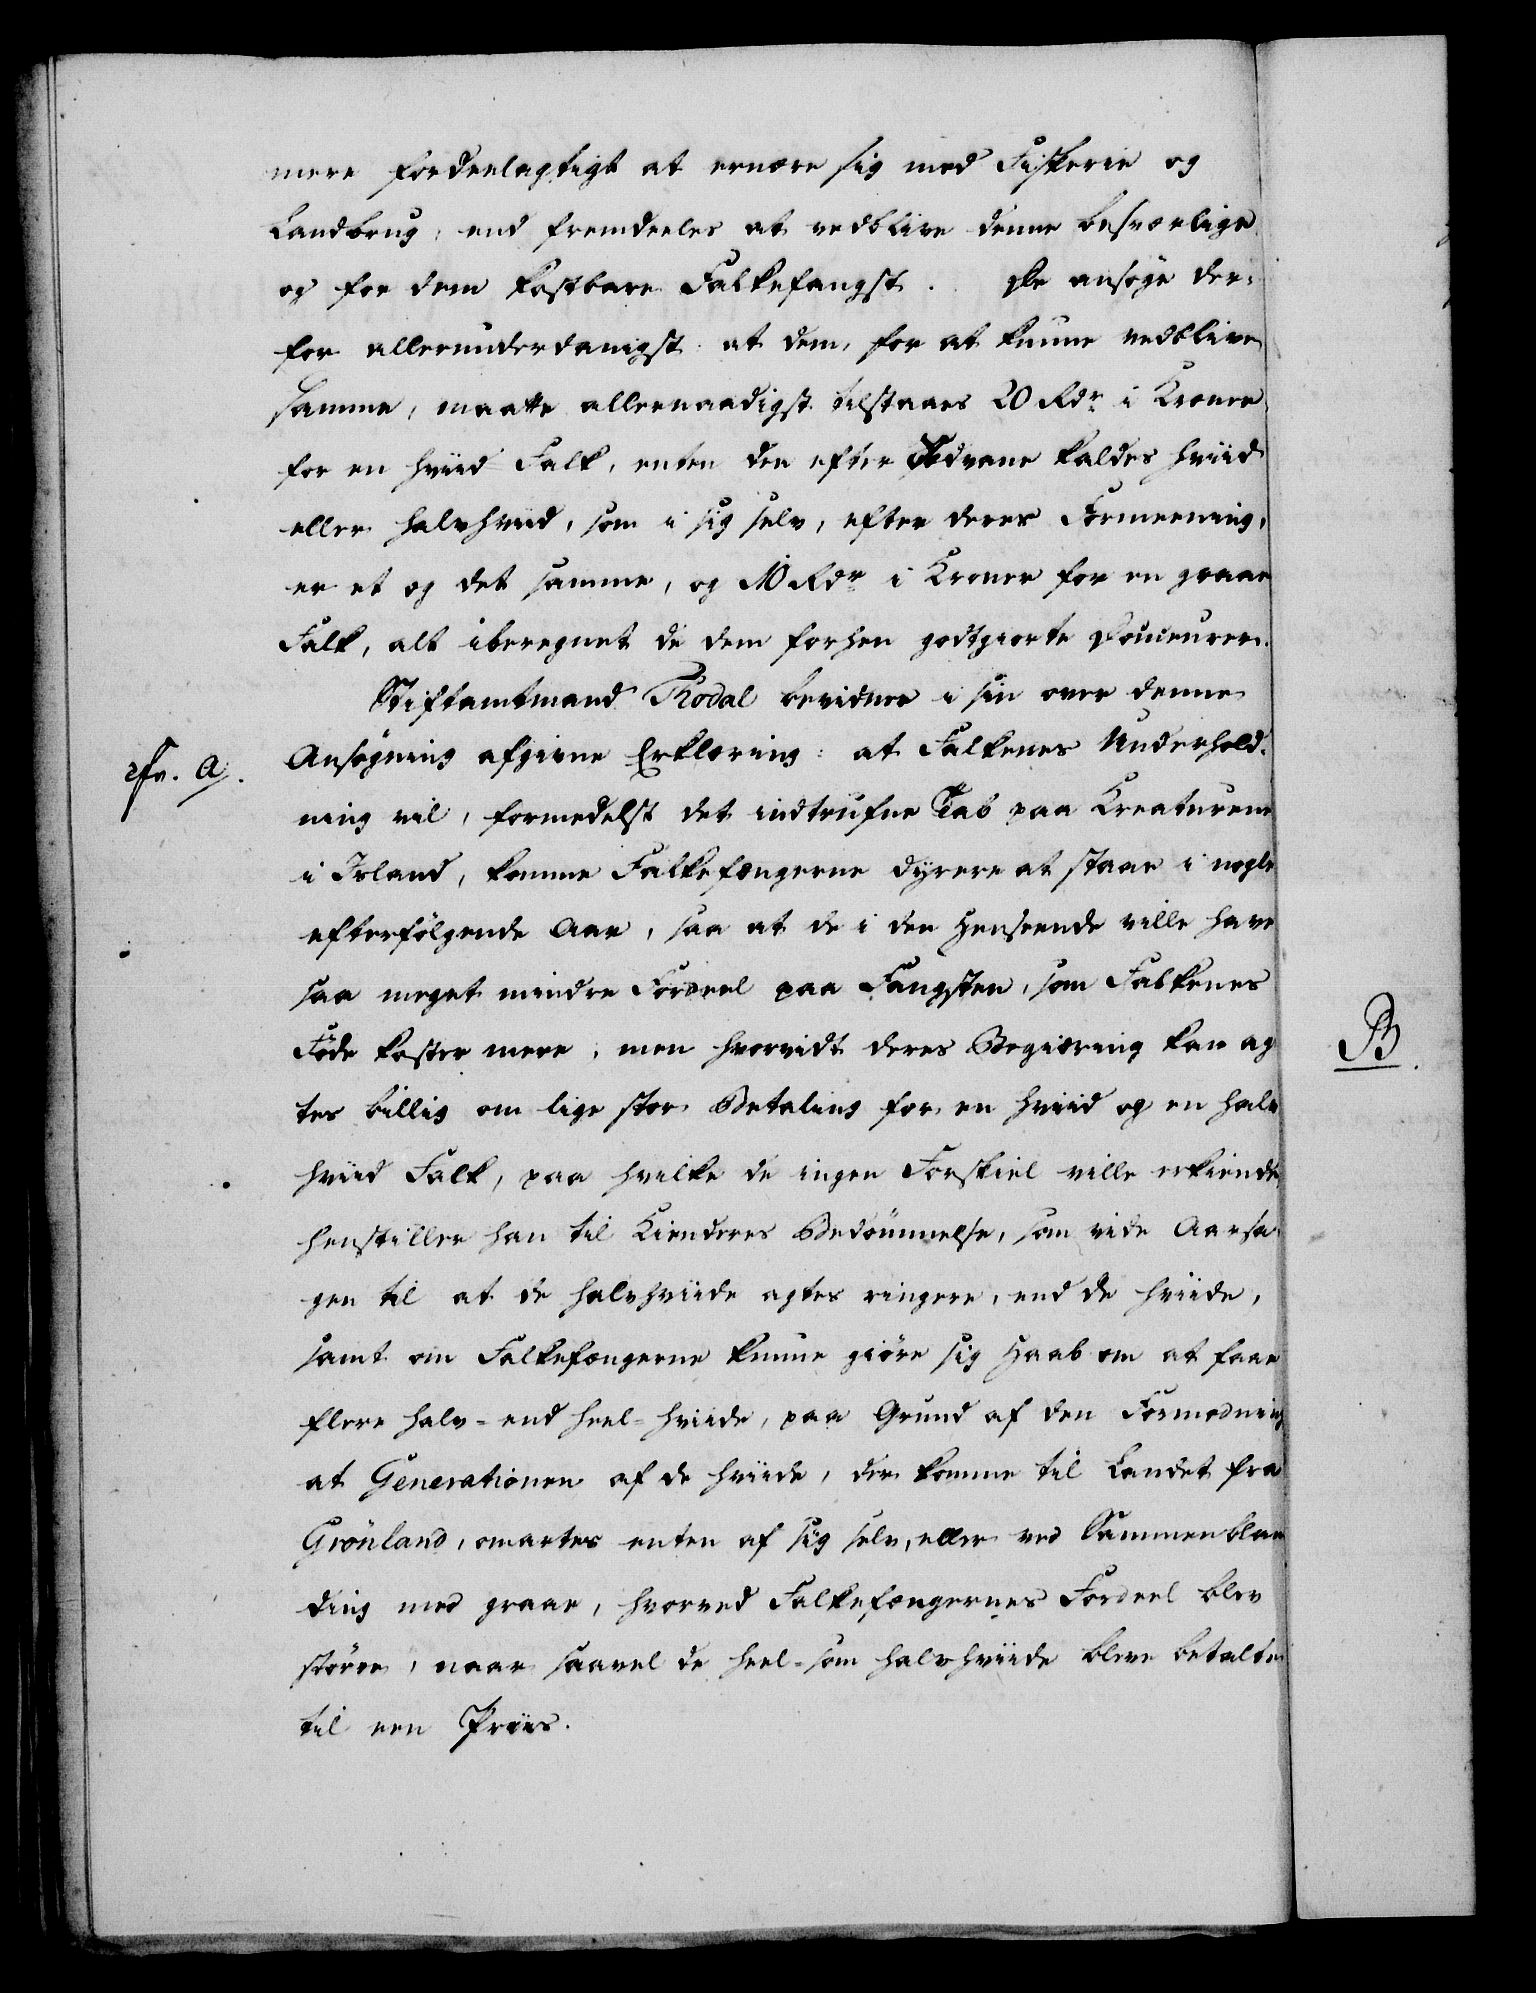 mere fordeelagtigt at ernære sig med Fiskerie og
Landbrug, end fremdeeles at vedblive denne besværlige
og for dem kostbare Falkefangst. De ansøge der-
for allerunderdanigst at dem, for at kunne vedblive
samme, maatte allernaadigst tilstaaes 20 Rdr i Kroner
for en hviid Falk, enten den efter Sedvane kaldes hviid
eller halvhviid, som i sig selv, efter deres Formeening,
er et og det samme, og 10 Rdr i Kroner for en graae
Falk, alt iberegnet de dem forhen godtgiorte Douceurer.
Stiftamtmand Thodal bevidner i sin over denne
Ansøgning afgivne Erklæring: at Falkenes Underhold-
cfr. A.
ning vil, formedelst det indtrufne Tab paa Kreaturene
i Island, komme Falkefængerne dyrere at staae i nogle
efterfølgende Aar, saa at de i den Henseende ville have
saa meget mindre Fordeel paa Fangsten, som Falkenes
Føde koster mere, men hvorvidt deres Begiæring kan ag
B.
tes billig om lige stor Betaling for en hviid og en halv
hviid Falk, paa hvilke de ingen Forskiel ville erkiende,
henstiller han til Kienderes Bedømmelse, som vide Aarsa-
gen til at de halvhviide agtes ringere, end de hviide,
samt om Falkefængerne kunne giøre sig Haab om at faae
flere halv- end heel-hviide, paa Grund af den Formodning
at Generationen af de hviide, der komme til Landet fra
Grönland, vanartes enten af sig selv, eller ved Sammenblan
ding med graae, hvorved Falkefængernes Fordeel blev
større, naar saavel de heel- som halvhviide bleve betalte
til een Priis.